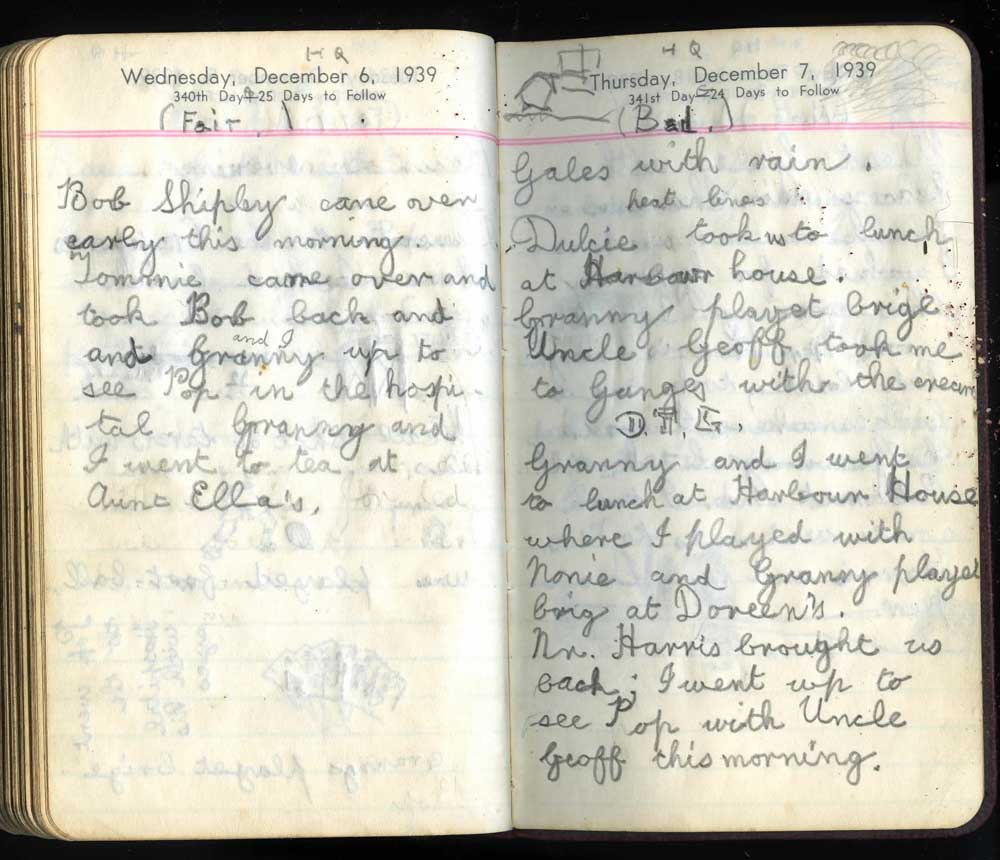 H Q
Wednesday, December 6, 1939
340th Day—25 Days to Follow
(Fair.)
Bob Shipley came over
early this morning.
Tommie came over and
took Bob back and
and I
and Granny up to
see Pop in the hospi-
tal Granny and
I went to tea at
Aunt Ella's.
H Q
Thursday, December 7, 1939
341st Day—24 Days to Follow
(Bad.)
Gales with rain.
heat lines
Dulcie took us to lunch
at Harbour house.
Granny playet brige
Uncle Geoff took me
to Ganges with the cream
Granny and I went
to lunch at Harbour House
where I played with
Nonie and Granny playet
brig at Doreen's.
Mr. Harris brought us
back; I went up to
see Pop with Uncle
Geoff this morning.